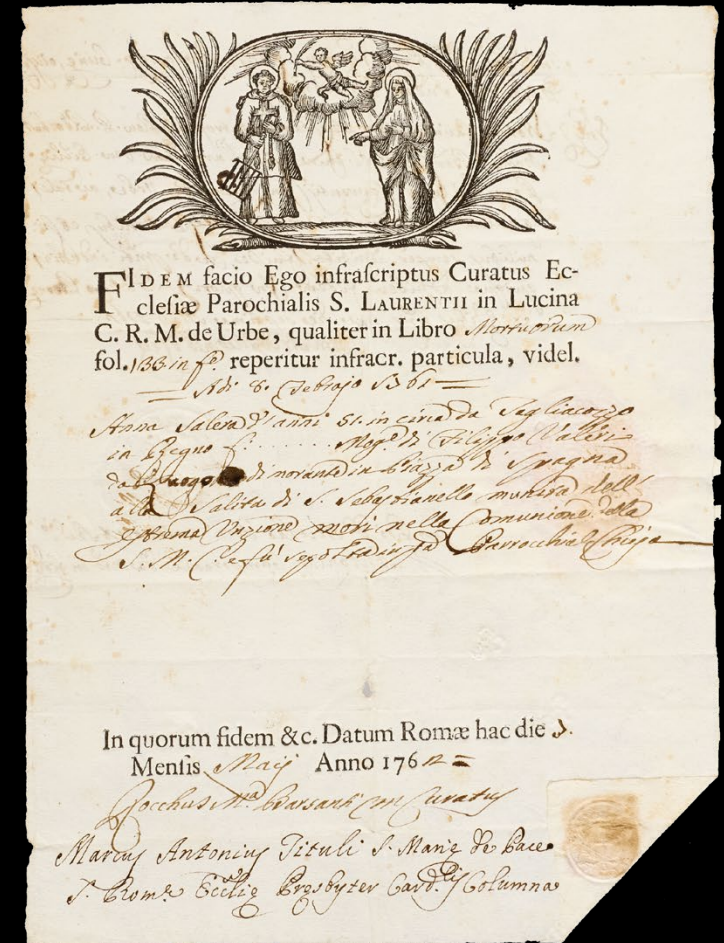 FIDEM facio Ego infraſcriptus Curatus Ec-
cleſiæ Parochialis S. LAURENTII in Lucina
C. R. M. de Urbe, qualiter in Libro Mortuorum
fol. 133 in reperitur infracr. particula, videl.
Adi 8. Febrajo
Anna Salera d' anni 51. in circa da Tagliacozzo
in Regno f. . . . . . . . Mog.e di Filippo Valeri
dimorante in Piazza di Spagna
alla Salita di S. Sebastianello munita dell'
estrema Unzione morì nella Comunione della
S. M. C. e fù sepolta in Parrocchia Chiesa
In quorum fidem &c. Datum Romæ hac die 3.
Menſis Maij Anno 1762
Rocchus M.a Barsanti Curatus
Marcus Antonius Tituli S. Marię de Pace
S. Rom.e Ecclię Presbyter Card. Columna